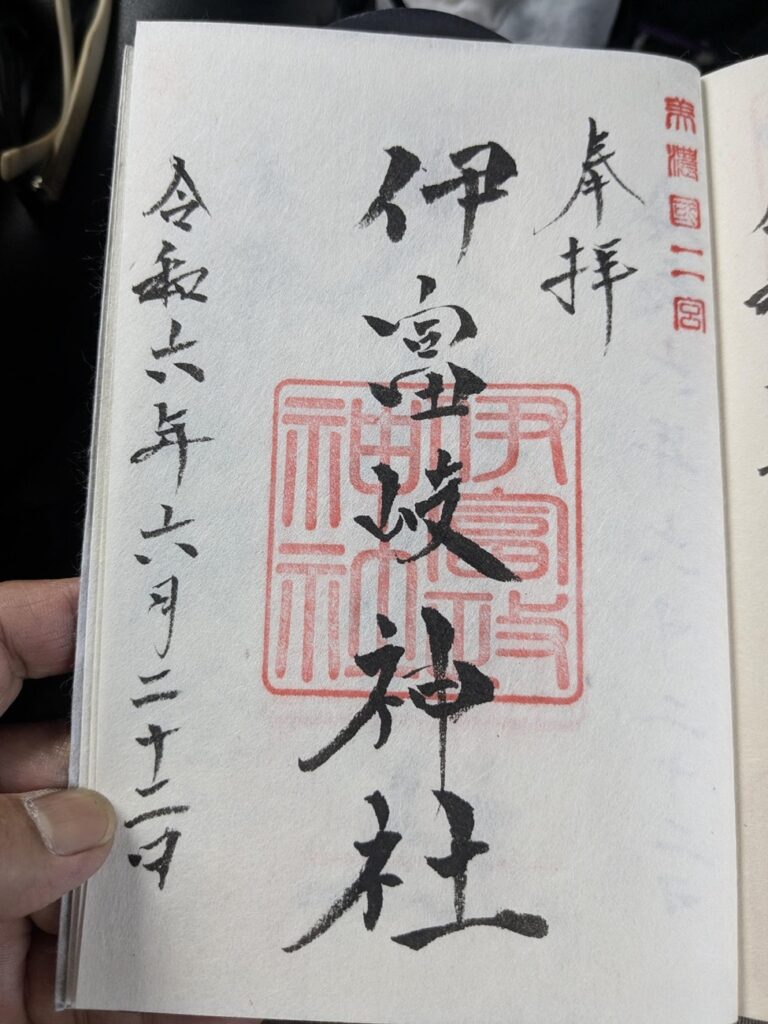 美濃國二宮
奉拝
伊富岐神社
伊富岐
神社
令和六年六月二十二日